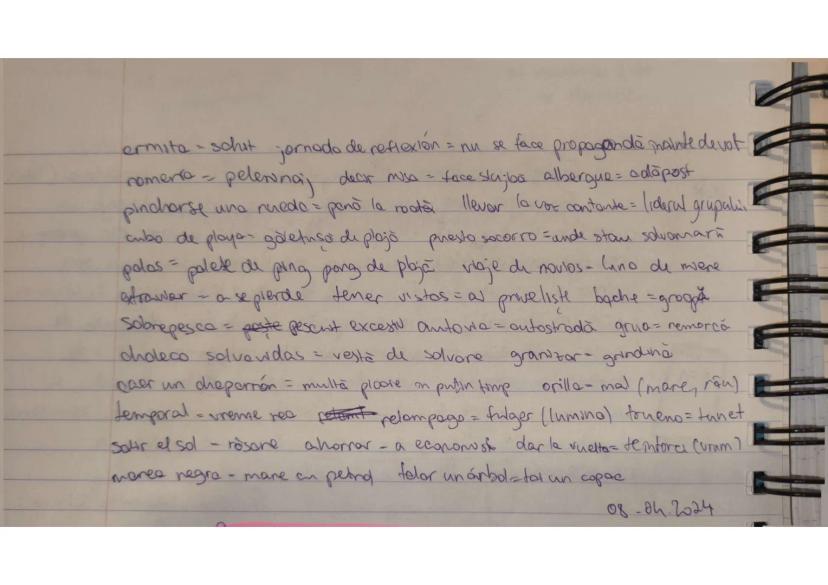 ermita = schit jornada de reflexión = nu se face propagandă înainte de vot
romería = pelerinaj decir misa = face slujba albergue = adăpost
pincharse una rueda = pană la roată llevar la voz cantante = liderul grupului
cubo de playa = găletușă de plajă puesto socorro = unde stau salvamarii
palas = palete de ping pong de plajă viaje de novios = luna de miere
extraviar = a se pierde tener vistas = ai priveliște bache = groapă
sobrepesca = pescuit excesiv autovía = autostradă grúa = remorcă
chaleco salvavidas = vestă de salvare granizar = grindină
caer un chaparrón = multă ploaie în puțin timp orilla = mal (mare, râu)
temporal = vreme rea relampago = fulger (lumina) trueno = tunet
salir el sol = răsare ahorrar = a economisi dar la vuelta = te întorci
marea negra = mare cu petrol talar un árbol = tai un copac
08.04.2024